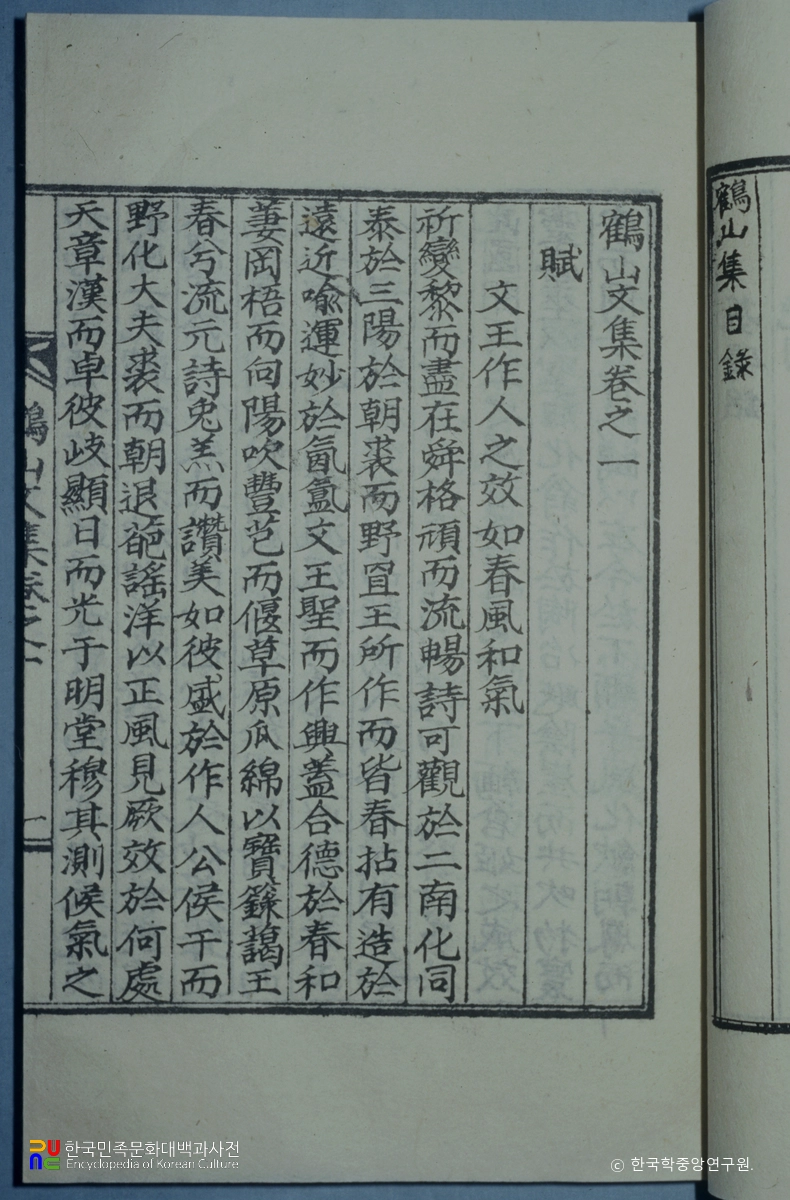 鶴山集目錄
鶴山文集卷之一
賦
文王作人之效如春風和氣
祈變黎而盡在舜格頑而流暢詩可觀於二南化同
泰於三陽於朝裘而野罝王所作而皆春拈有造於
遠近喩運妙於氤氳文王聖而作興蓋合德於春和
萋岡梧而向陽吹豐芑而偃草原瓜綿以寶籙藹王
春兮流元詩兎羔而讚美如彼盛於作人公侯干而
野化大夫裘而朝退葩謠洋以正風見厥效於何處
天章漢而卓彼岐顯日而光于明堂穆其測候氣之
鶴山文集卷之一
一
한국민족문화대백과사전
Encyclopedia of Korean Culture
ⓒ 한국학중앙연구원.